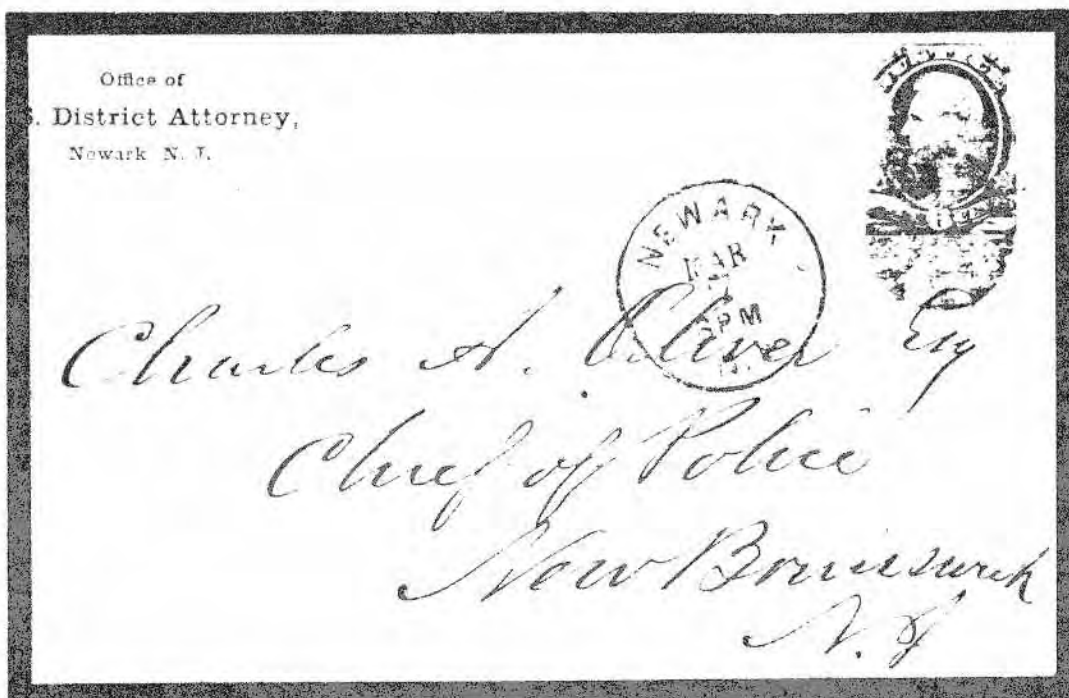 Office of
S. District Attorney,
Newark N. J.
NEWARK
MAR
PM
Charles A. Oliver Esq
Chief of Police
New Brunswick
N. J